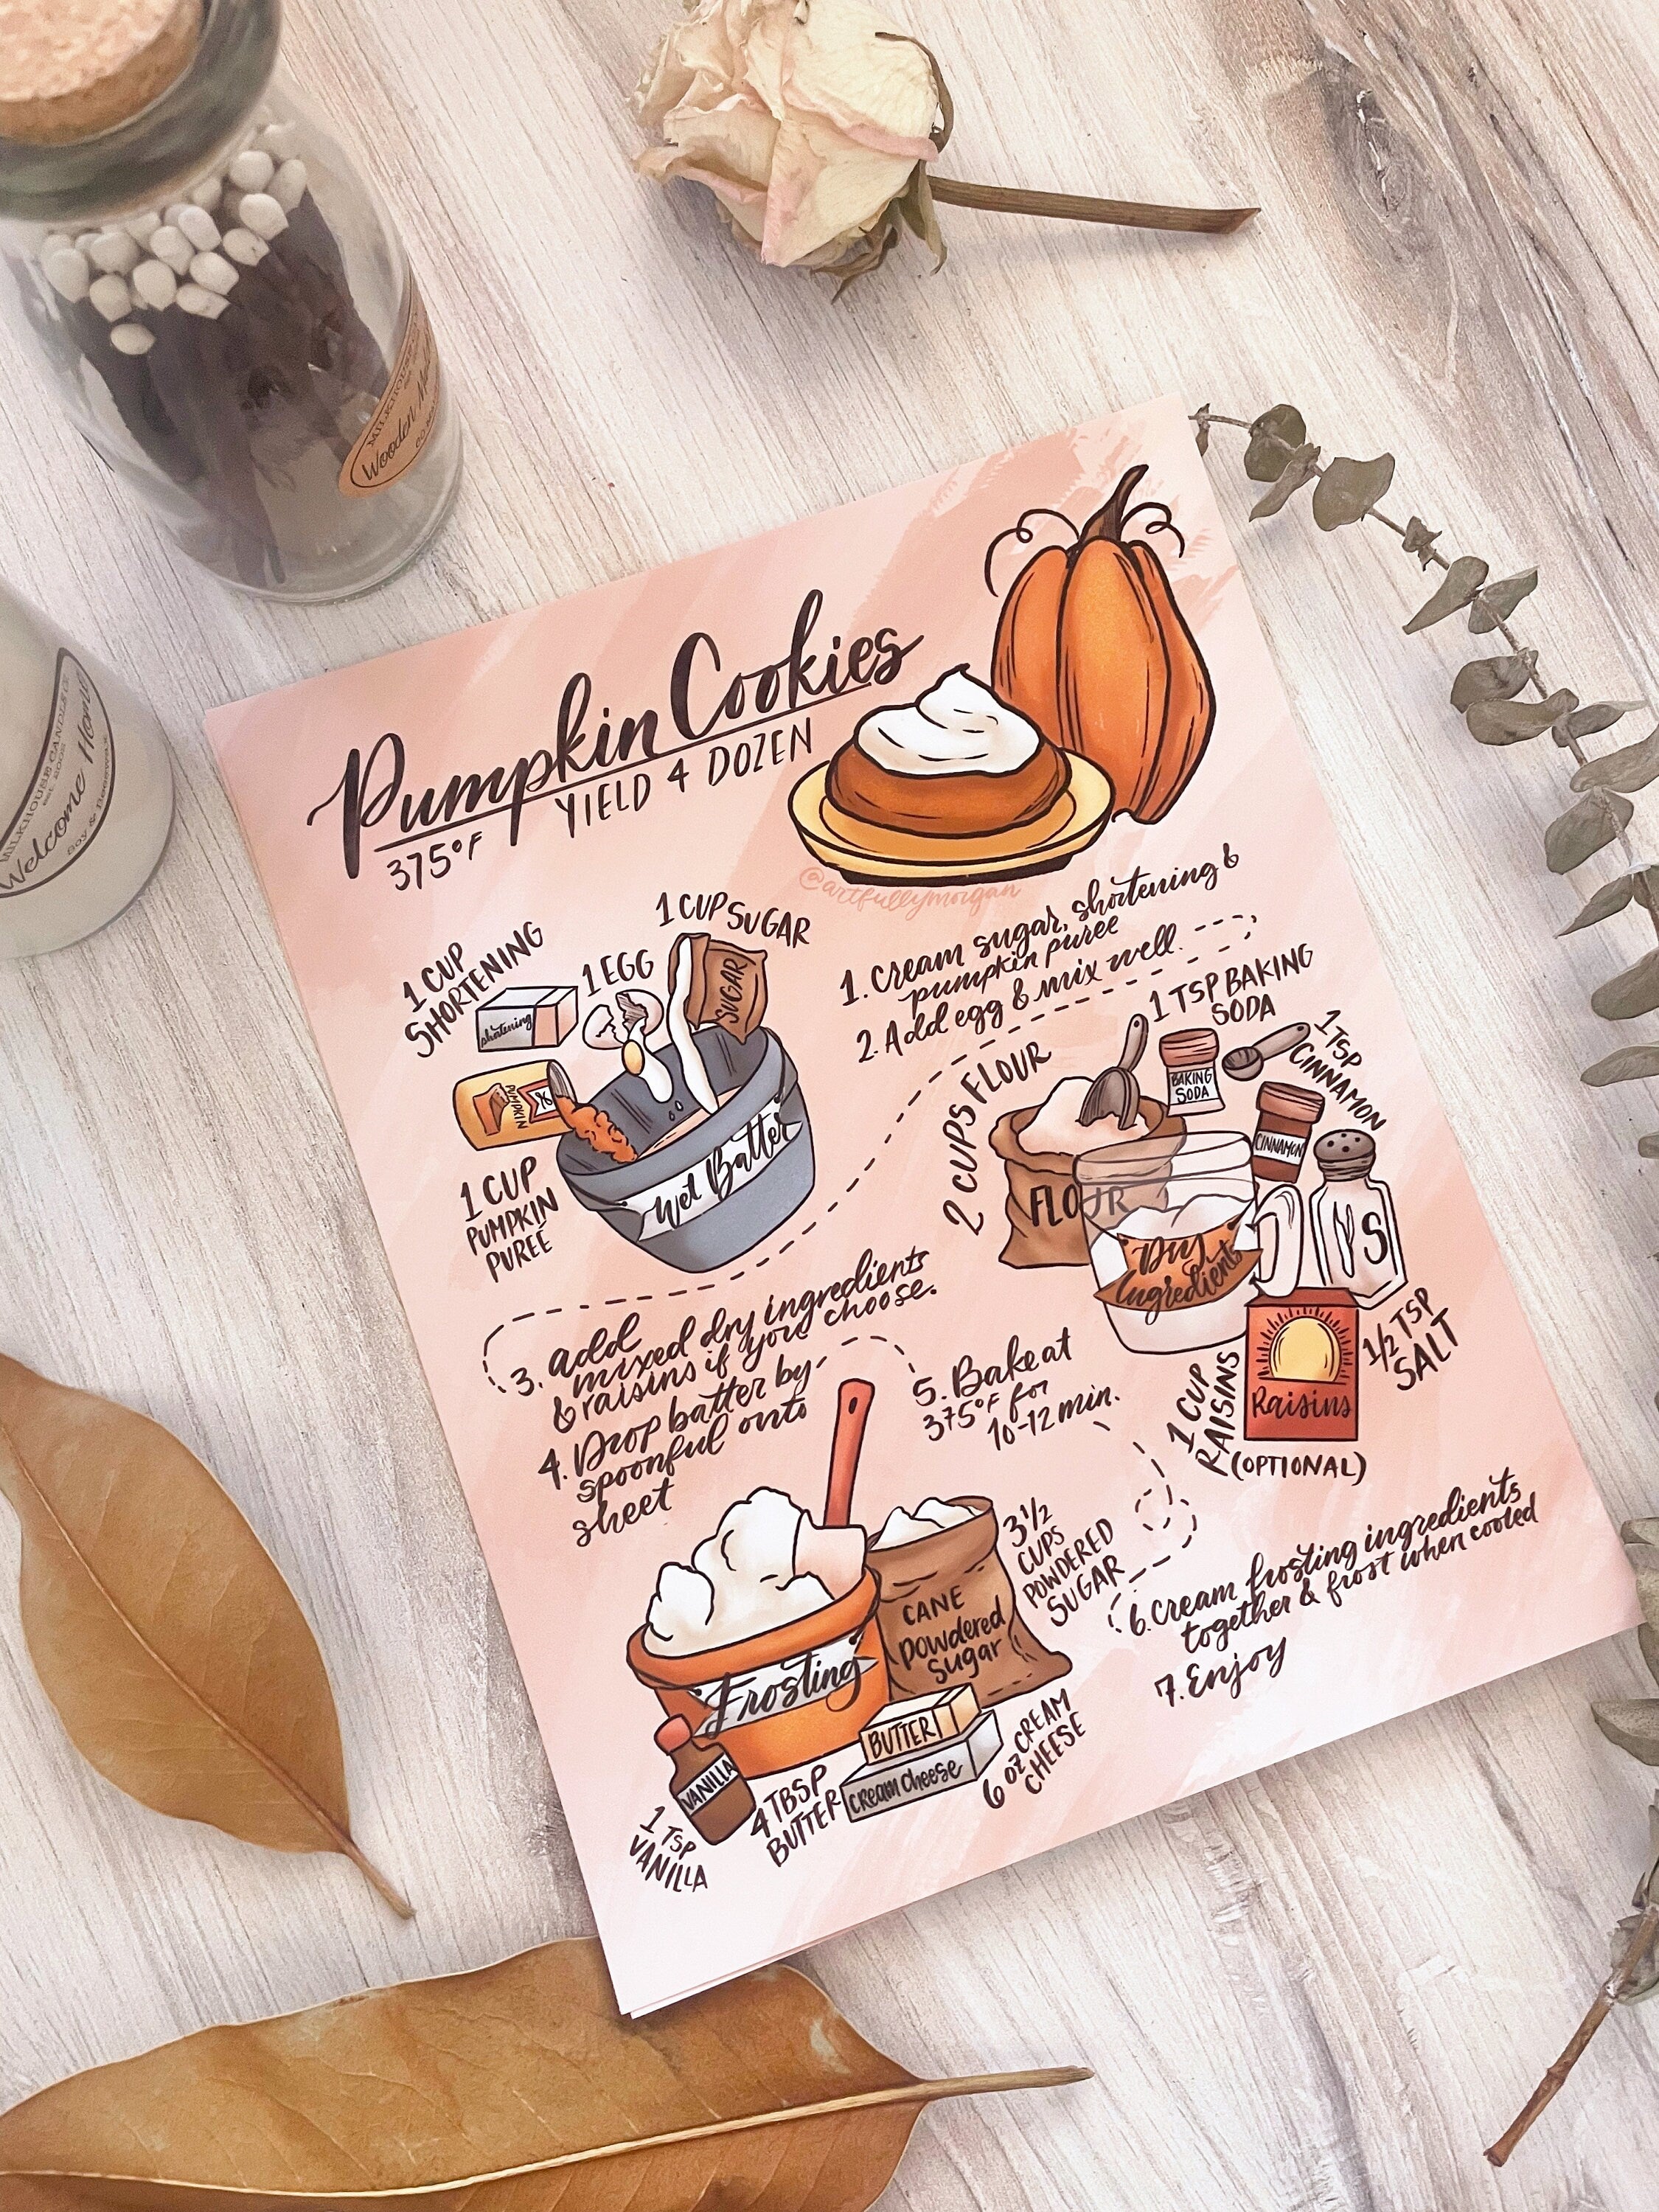 MILKHOUSE
Wooden
MILKHOUSE CANDLE
Welcome Home
Soy & Beeswax
Pumpkin Cookies
375°F
YIELD 4 DOZEN
@artfullymorgan
1 CUP
SHORTENING
shortening
1 EGG
1 CUP SUGAR
SUGAR
PUMPKIN
1 CUP
PUMPKIN
PUREÉ
Wet Batter
1. Cream sugar, shortening &
pumpkin puree
2. Add egg & mix well
2 CUPS FLOUR
FLOUR
1 TSP BAKING
SODA
BAKING
SODA
1 TSP
CINNAMON
CINNAMON
Dry
Ingredients
S
1/2 TSP
SALT
1 CUP
RAISINS
(OPTIONAL)
Raisins
3. add
mixed dry ingredients
& raisins if you choose.
4. Drop batter by
spoonful onto
sheet
5. Bake at
375°F for
10-12 min.
Frosting
CANE
powdered
sugar
3 1/2
CUPS
POWDERED
SUGAR
VANILLA
1 TSP
VANILLA
4 TBSP
BUTTER
BUTTER
cream cheese
6 oz CREAM
CHEESE
6. Cream frosting ingredients
together & frost when cooled
7. Enjoy